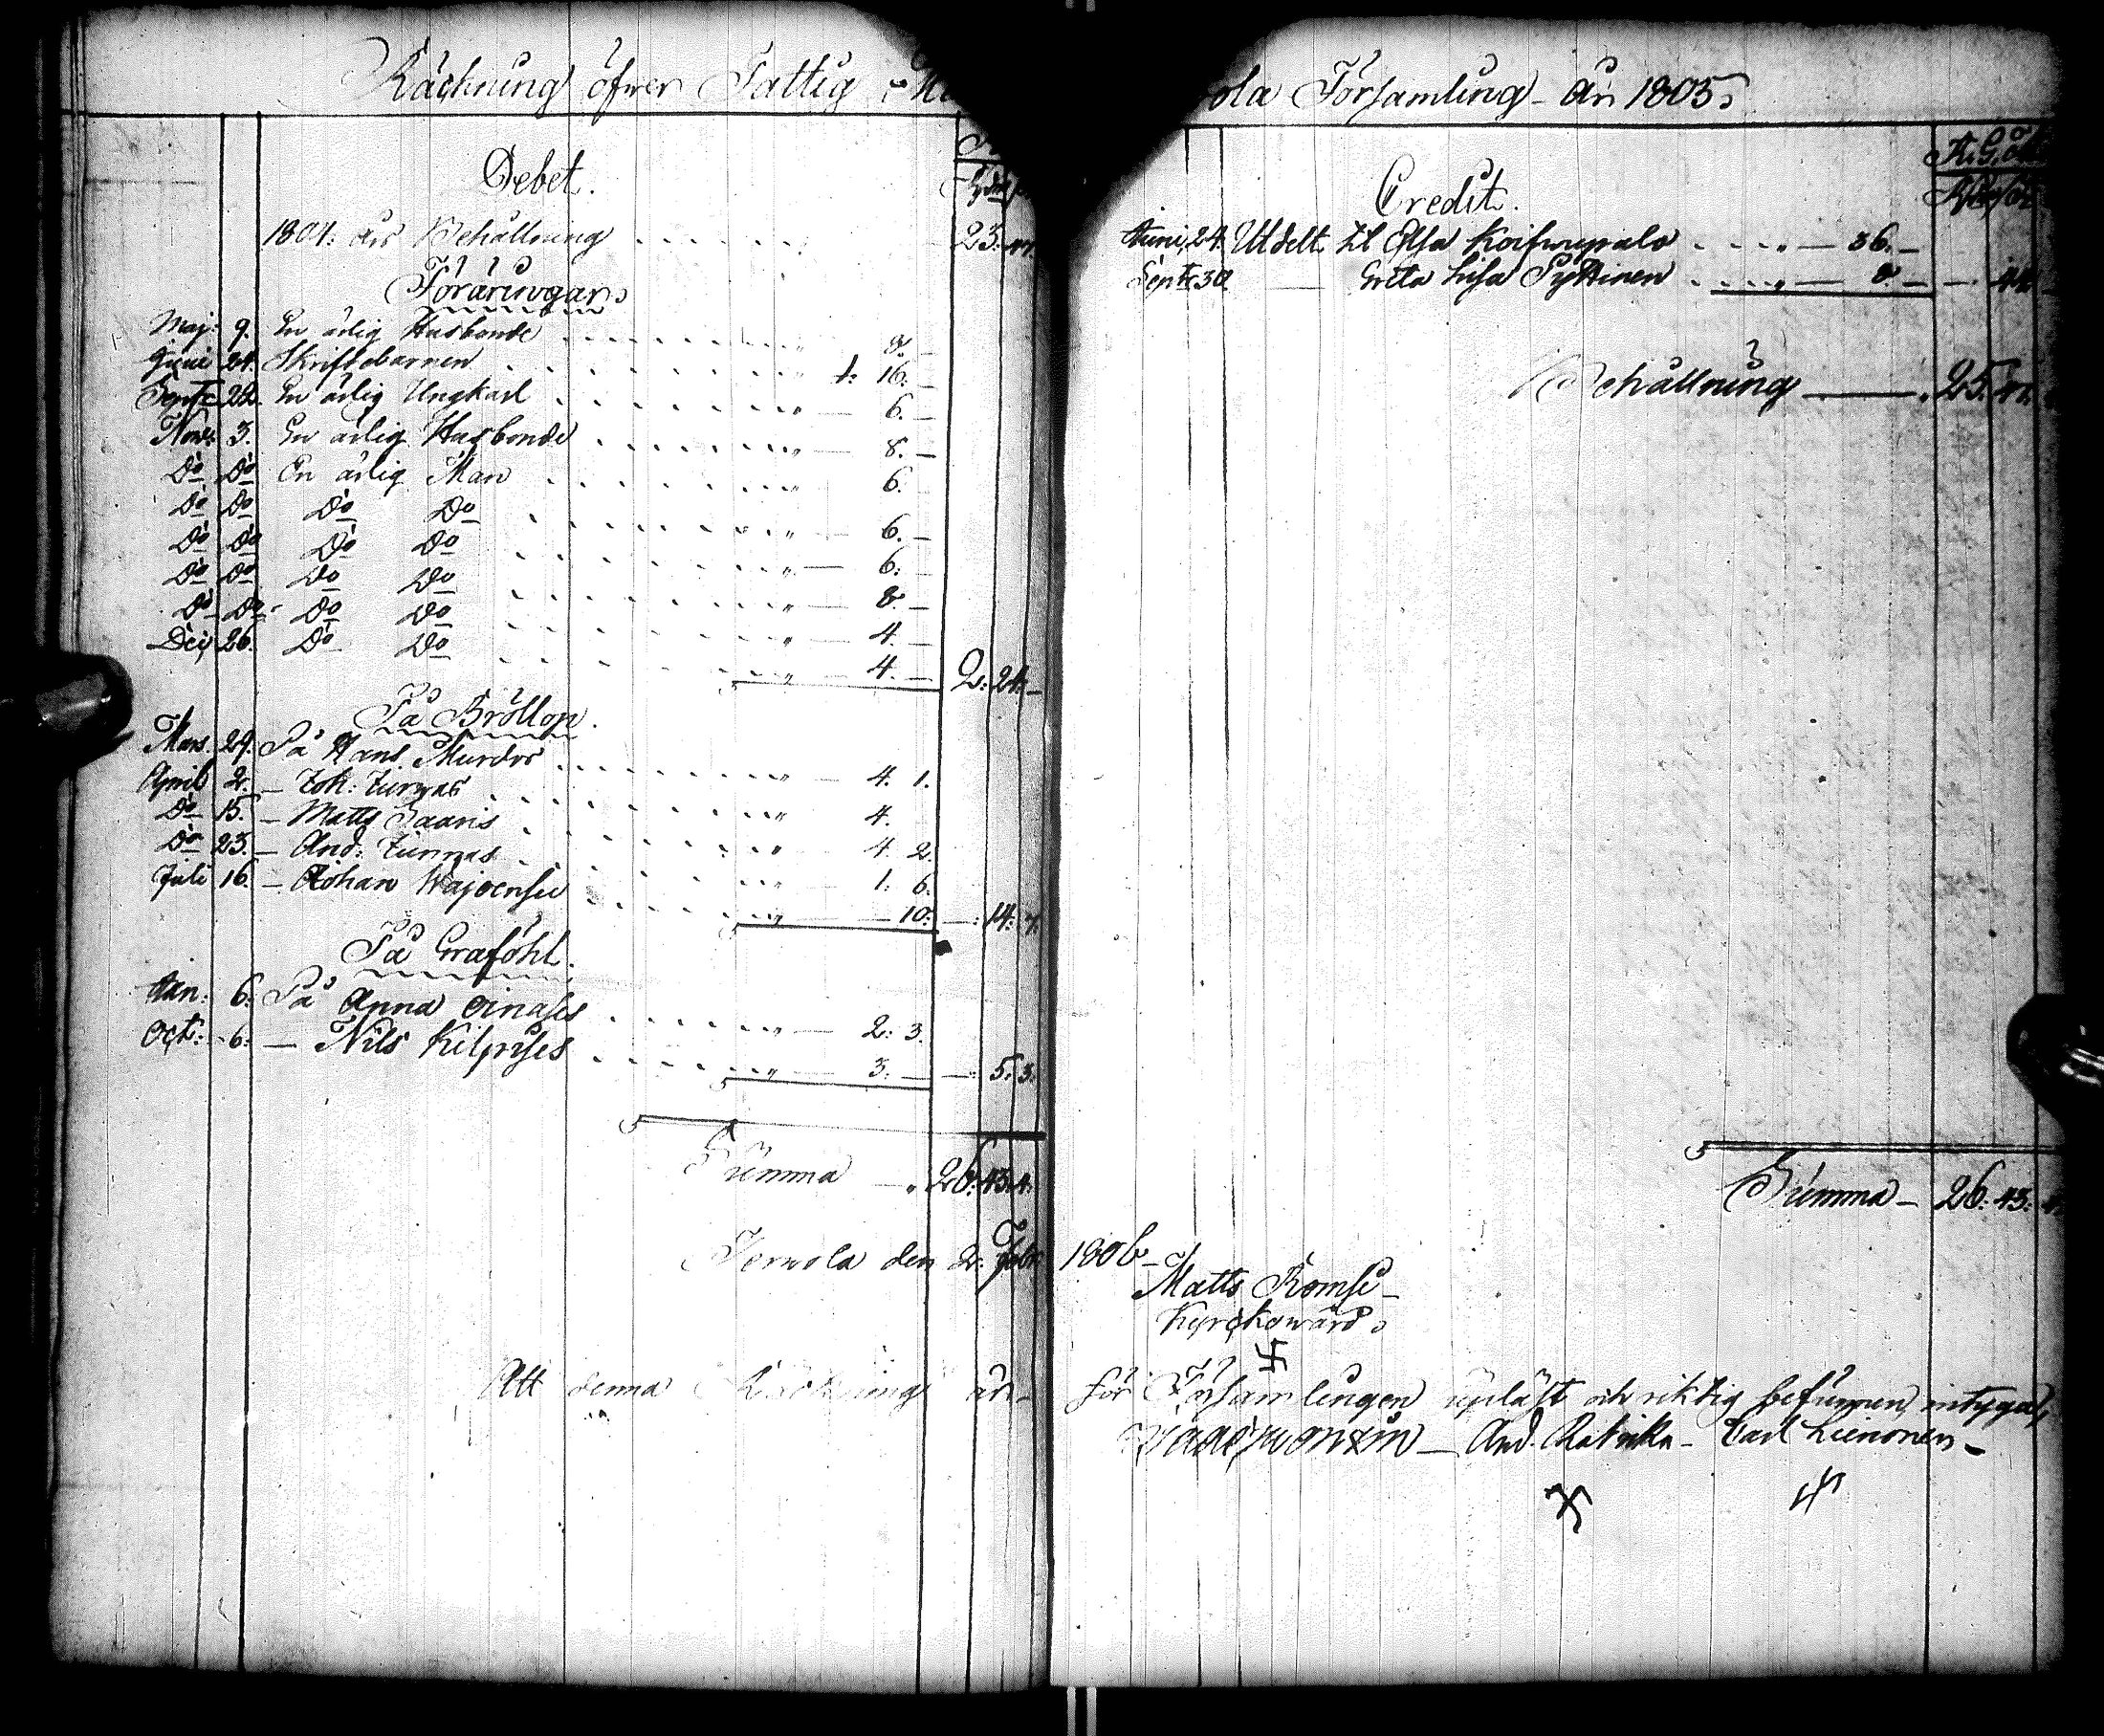 Räckning öfwer Fattig
Debet.
1804: års Behållning 23.
Föräringar
Maj: 9. En ärlig Husbonde 8. —
Junii 24. Skriftebarnen 1: 16. —
Sept 22. En ärlig Ungkarl — 6. —
Nov. 3. En ärlig Husbonde — 8. —
Do Do En ärlig Man 6.
Do Do Do Do 6. —
Do Do Do Do — 6: —
Do Do Do Do — 8. —
Do Do Do Do — 4. —
Dec 26. Do Do — 4. — 2: 24. —
På Bröllop.
Mars. 29. På Hans Murdos — 4. 1.
April 2. — Joh: Turpas 4.
Do 15. — Matts Saaris 4. 2.
Do 23. — And: — 1: 6.
Juli 16. — Johan — 10: — : 14: 7.
På Graföhl.
Jan: 6: På Anna Oinases — 2: 3.
Oct: 6: — Nils Kilpises — 3: — — 5: 3.
Summa — 26: 43. 4.
den 2. Febr.
Att denna Räckning är
ola Församling År 1805
Credit.
Junii 24. Utdelt til Elsa — 36. —
Sept 30 — Greta Lisa Pyttinen — 8 — — 44
Behållning — 25.
Summa — 26. 43.
1806 —
Matts Romsi —
Kyrckowärd
för Församlingen upläst och riktig befunnen, intygas,
— And. — Carl Lienonen —